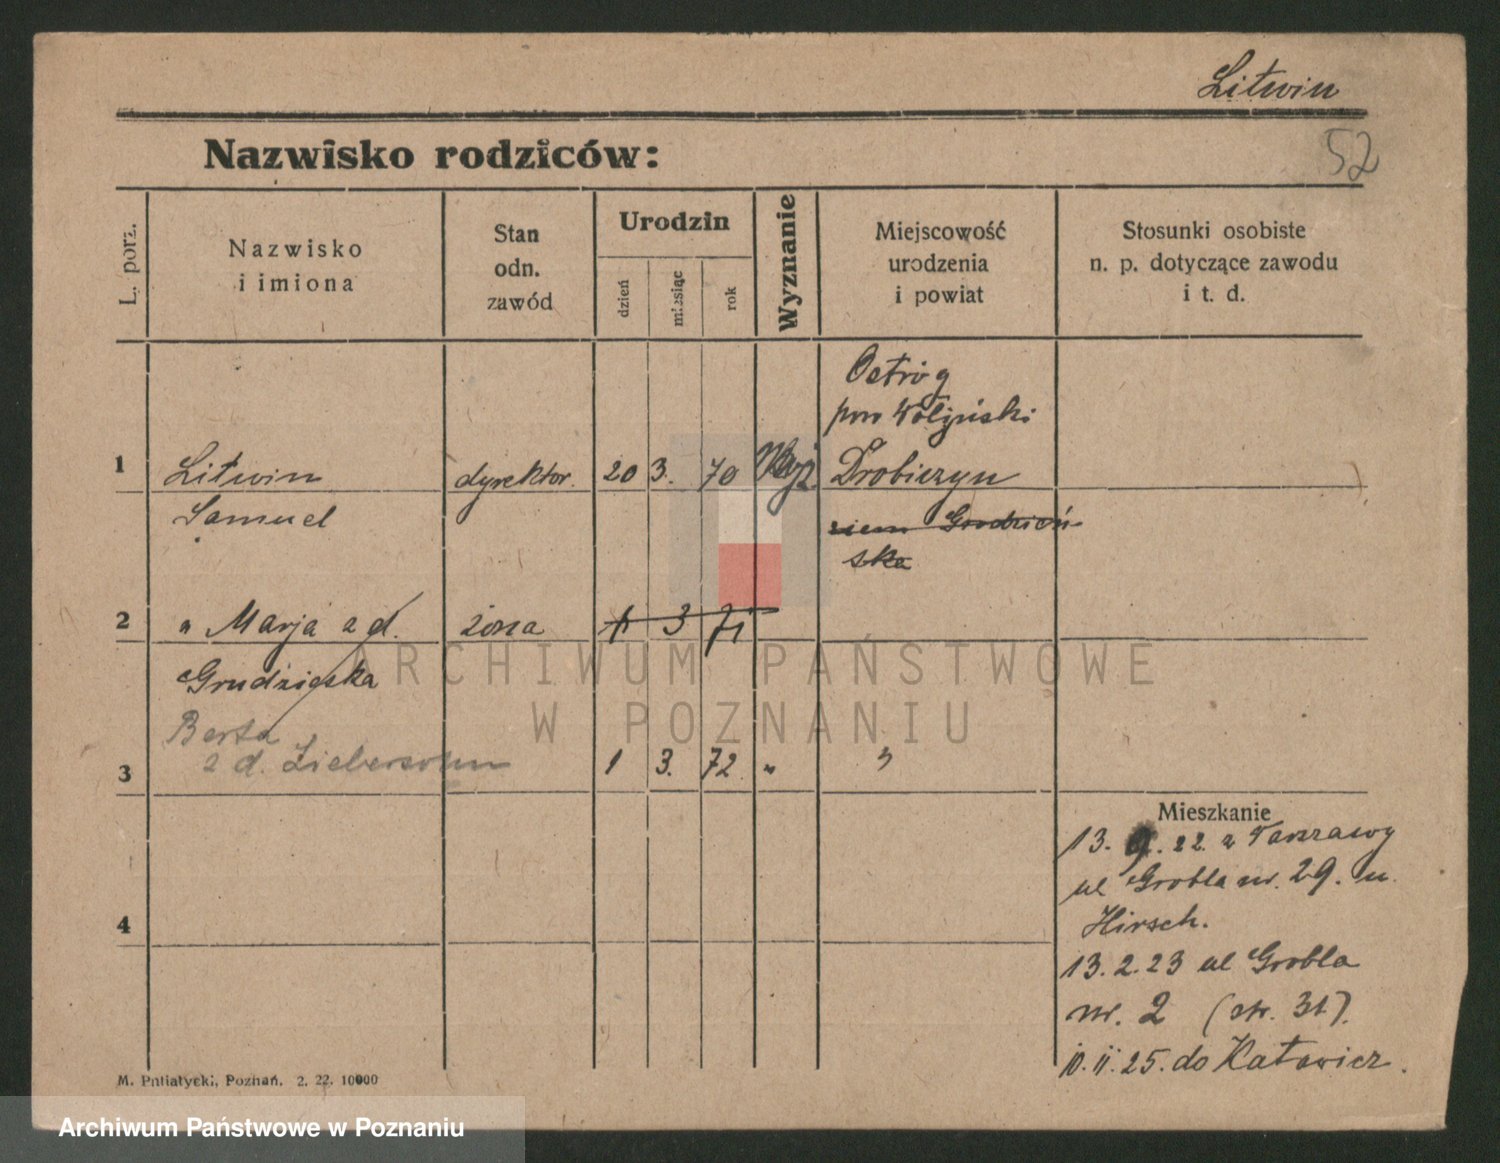 Litwin
52
Nazwisko rodziców:
L. porz.
Nazwisko
i imiona
Stan
odn.
zawód
Urodzin
dzień
miesiąc
rok
Wyznanie
Miejscowość
urodzenia
i powiat
Stosunki osobiste
n. p. dotyczące zawodu
i t. d.
Ostróg
pow Wołyński
1 Litwin dyrektor. 20 3. 70 Drobiczyn
Samuel
ziem Grodzień
ska
2 " Marja z d. żona 1 3 71
Grudzięska
Berta
3 z d. Liebersohn 1 3. 72 " "
Mieszkanie
13. 9. 22 z Warszawy
ul Grobla nr. 29. u.
Hirsch.
4
13.2.23 ul Grobla
nr. 2 (str. 31).
10.11.25. do Katowicz.
M. Putiatycki, Poznań. 2. 22. 10000
ARCHIWUM PAŃSTWOWE
W POZNANIU
Archiwum Państwowe w Poznaniu